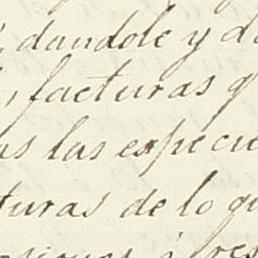 dandole y da
facturas q
as las especie
turas de lo qu